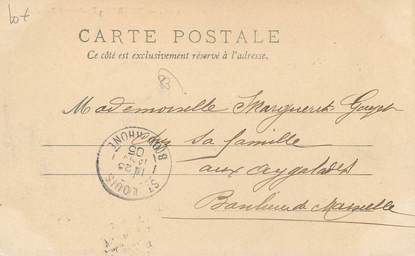 lot
CARTE POSTALE
Ce côté est exclusivement réservé à l'adresse.
Mademoiselle Marguerite
sa famille
aux aygalades
Banlieue de Marseille
ST LOUIS
BOUCH DU RHONE
23
05